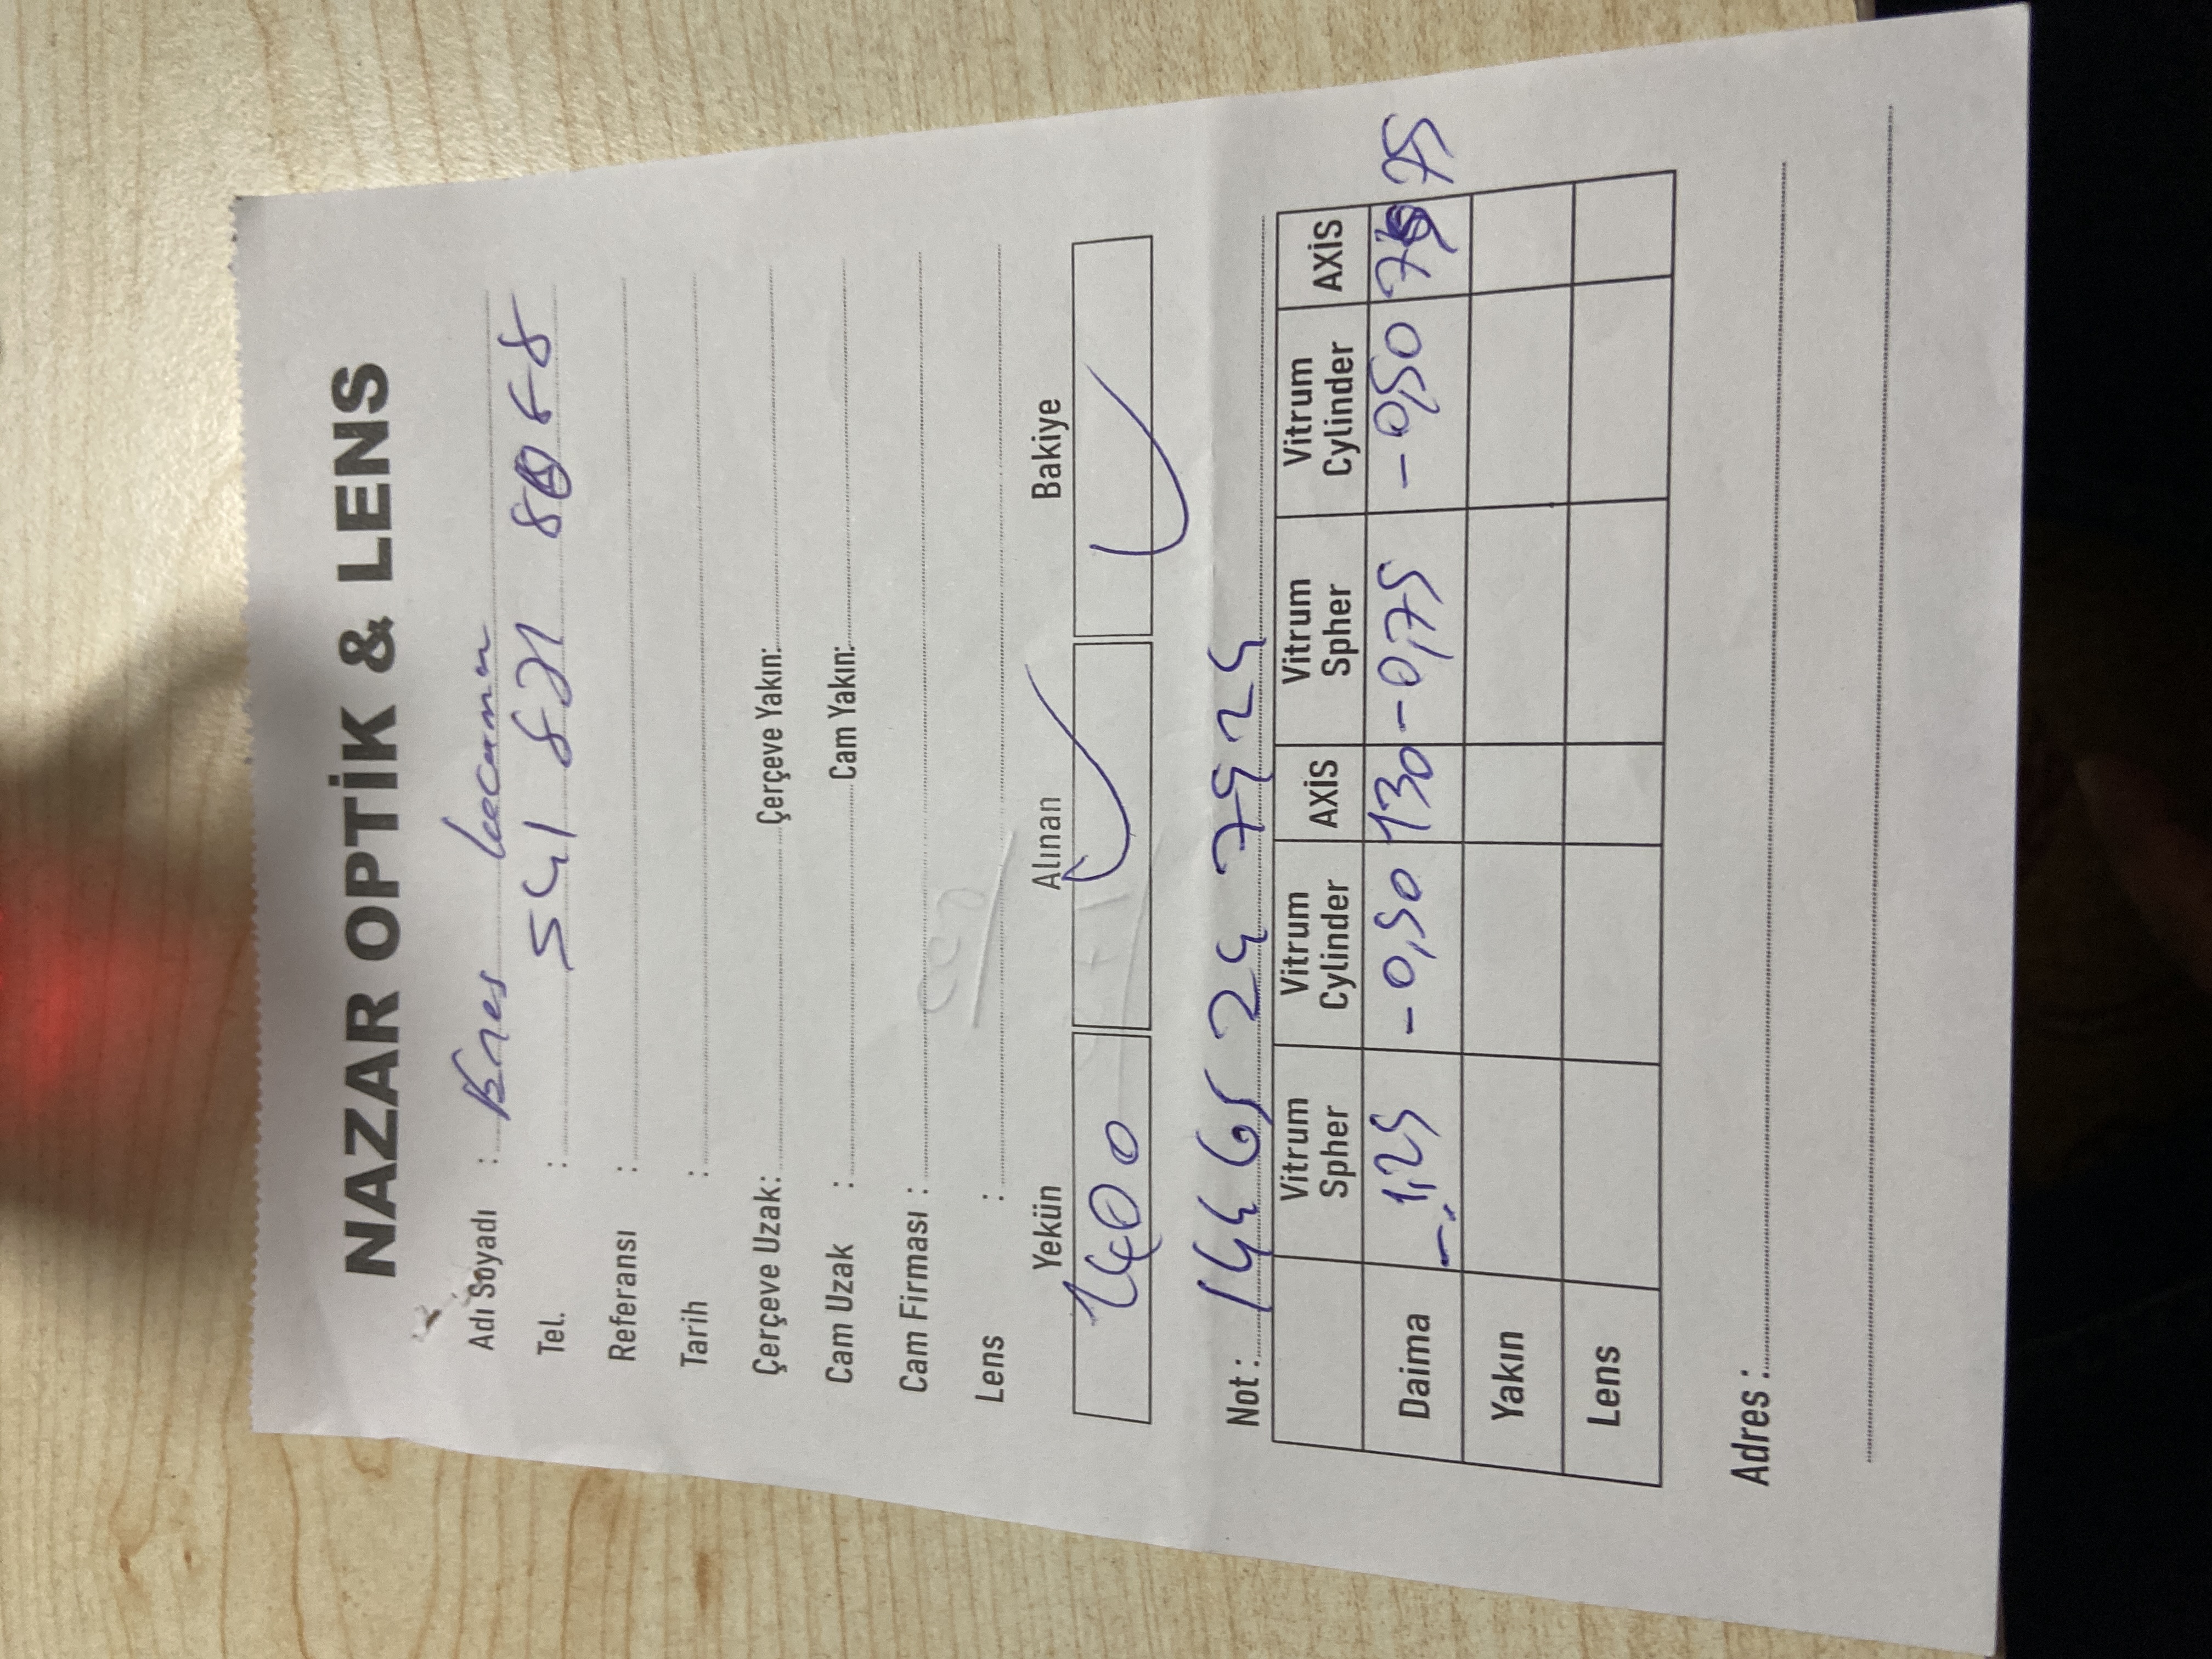 NAZAR OPTİK & LENS
Adı Soyadı : Enes
Tel. : 541 821 8088
Referansı :
Tarih :
Çerçeve Uzak: Çerçeve Yakın:
Cam Uzak : Cam Yakın:
Cam Firması :
Lens :
Yekün Alınan Bakiye
1400 ✓ ✓
Not : 144 65 24 7424
Vitrum Spher Vitrum Cylinder AXİS Vitrum Spher Vitrum Cylinder AXİS
Daima -1,25 -0,50 130 -0,75 -0,50 75 75
Yakın
Lens
Adres :